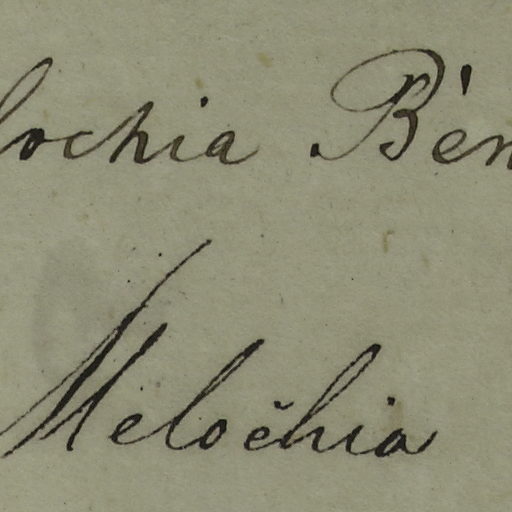 lochia Bén
Meločhia